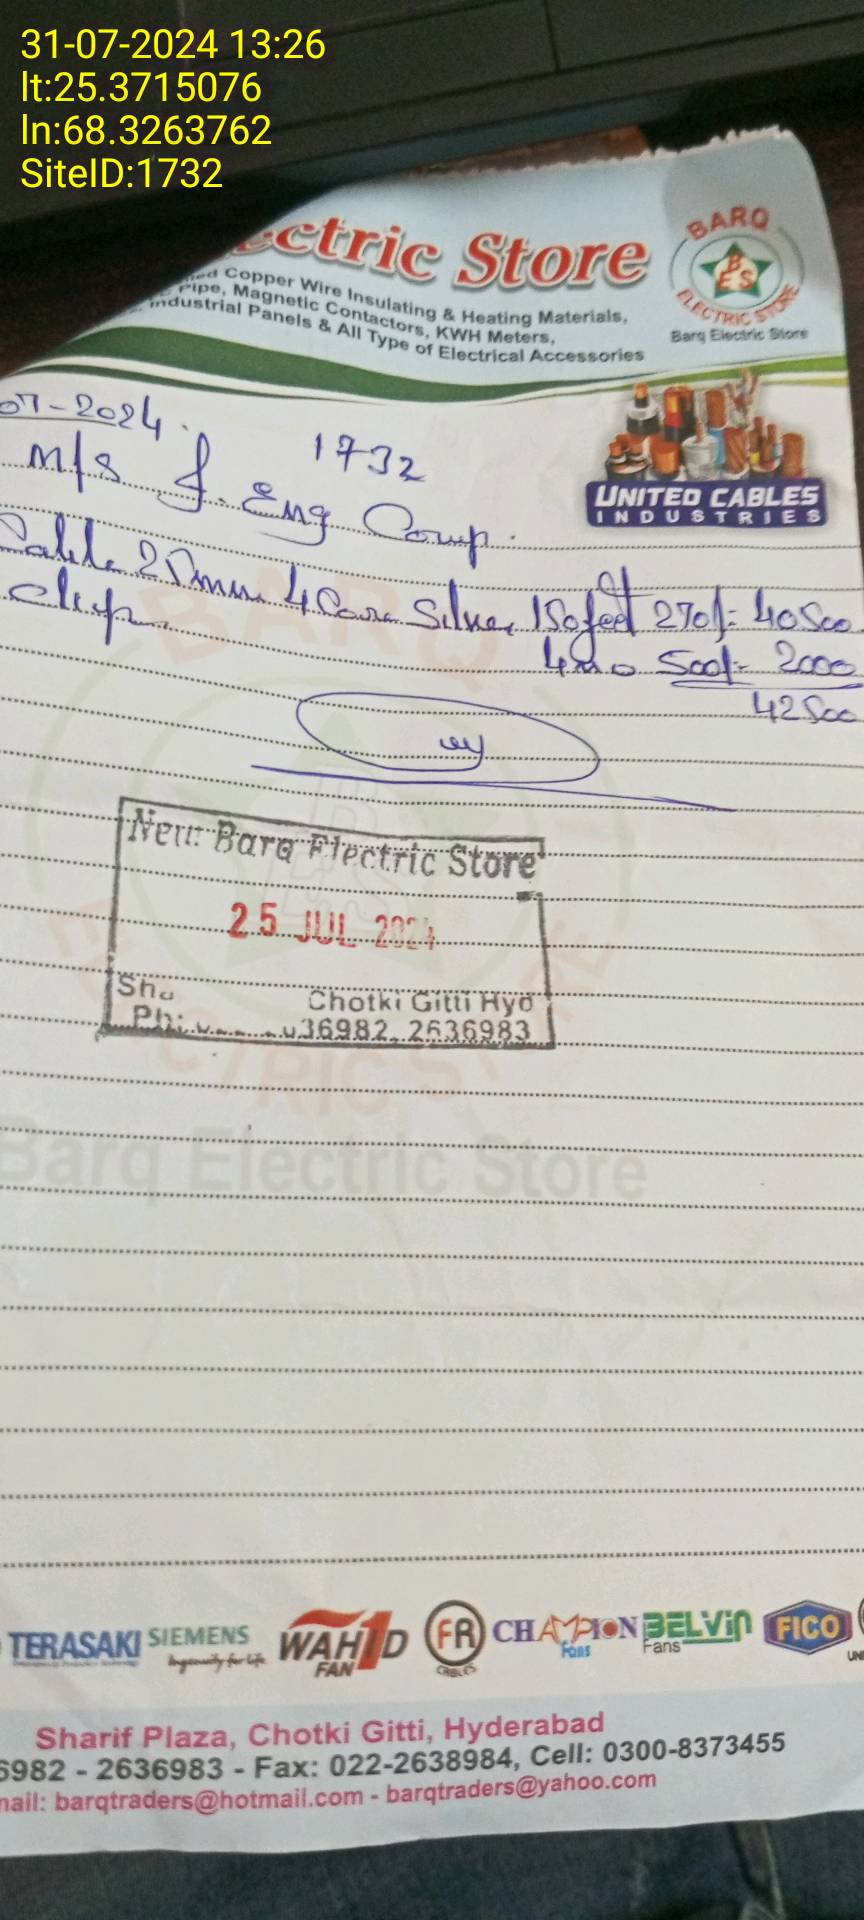 31-07-2024 13:26
lt:25.3715076
ln:68.3263762
SiteID:1732
ctric Store
BARQ
BES
ELECTRIC STORE
Barq Electric Store
Copper Wire Insulating & Heating Materials,
Pipe, Magnetic Contactors, KWH Meters,
Industrial Panels & All Type of Electrical Accessories
07-2024
1732
M/s J. Eng Comp.
UNITED CABLES
INDUSTRIES
25mm 4 Core Silver 150 feet 270/- 40500
clip 4no 500/- 2000
42500
New Barq Electric Store
25 JUL 2024
Chotki Gitti Hyd
Ph: 36982, 2636983
Barq Electric Store
TERASAKI SIEMENS Ingenuity for life WAHID FAN FR CABLES CHAMPION Fans BELVIN Fans FICO
Sharif Plaza, Chotki Gitti, Hyderabad
6982 - 2636983 - Fax: 022-2638984, Cell: 0300-8373455
mail: barqtraders@hotmail.com - barqtraders@yahoo.com